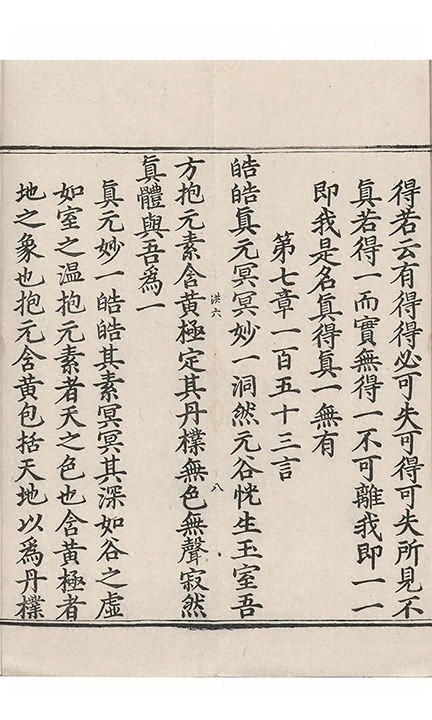 得若云有得得必可失可得可失所見不
真若得一而實無得一不可離我即一一
即我是名真得真一無有
第七章一百五十三言
皓皓真元冥冥妙一洞然元谷恍生玉室吾
洪六
八
方抱元素含黃極定其丹檏無色無聲寂然
真體與吾爲一
真元妙一皓皓其素冥冥其深如谷之虛
如室之温抱元素者天之色也含黃極者
地之象也抱元含黃包括天地以爲丹檏